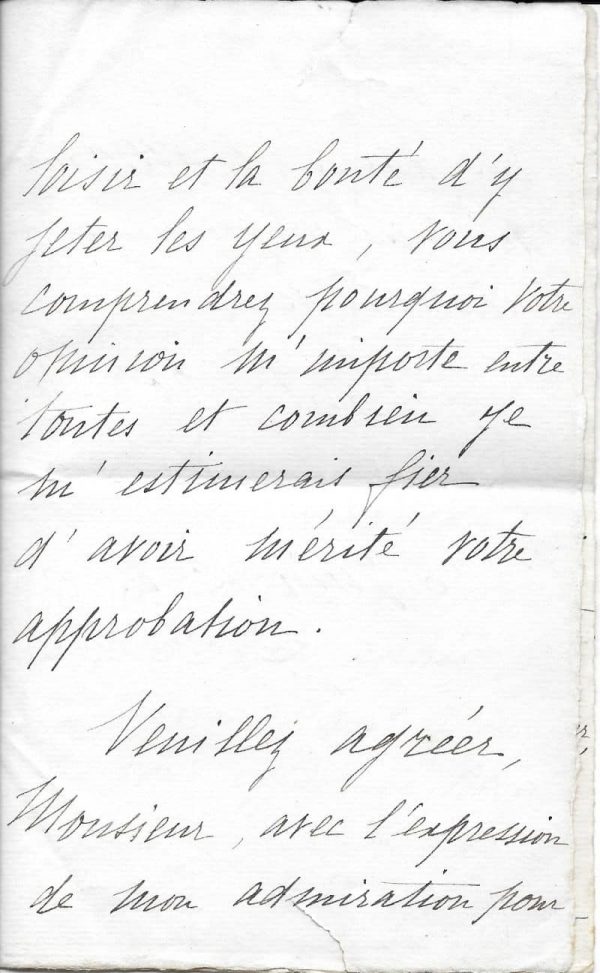 loisir et la bonté d'y
jeter les yeux, vous
comprendrez pourquoi votre
opinion m'importe entre
toutes et combien je
m'estimerais fier
d'avoir mérité votre
approbation.
Veuillez agréer,
Monsieur, avec l'expression
de mon admiration pour